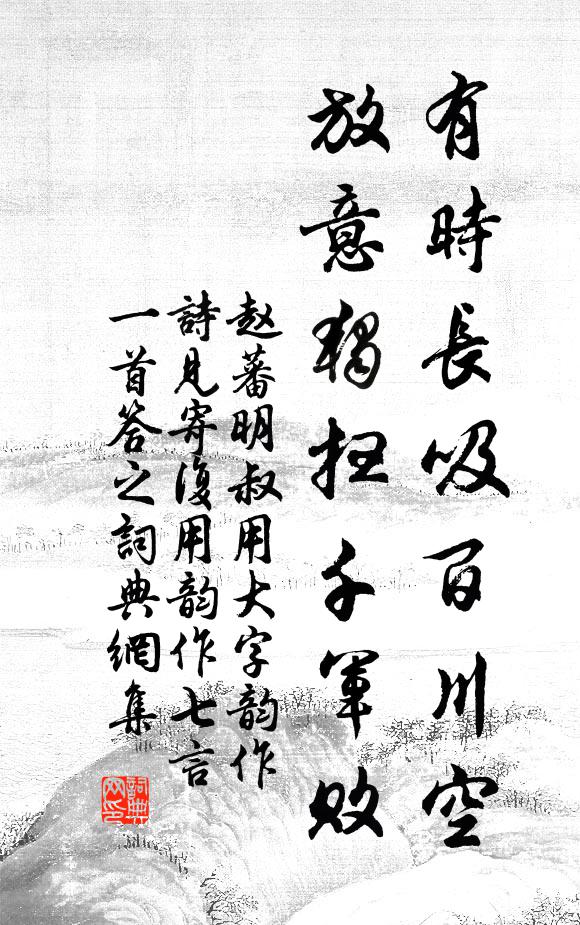 有時長吸百川空
放意獨掃千軍敗
赵蕃明叔用大字韵作
詩見寄復用韵作七言
一首答之詞典網集
詞典
网印